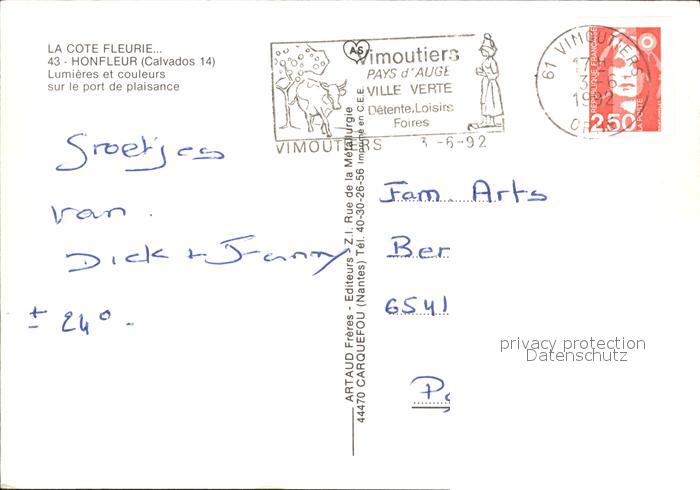 LA COTE FLEURIE...
43 - HONFLEUR (Calvados 14)
Lumières et couleurs
sur le port de plaisance
AS
Vimoutiers
PAYS d'AUGE
VILLE VERTE
Détente.Loisirs
Foires
VIMOUTIERS 3-6-92
61 VIMOUTIERS
3-6
1992
REPUBLIQUE FRANÇAISE
LA POSTE
2,50
Groetjes
van.
Dick + Fanny
± 24°.
ARTAUD Frères - Editeurs - Z.I. Rue de la Métallurgie
44470 CARQUEFOU (Nantes) Tél. 40-30-26-56 Imprimé en C.E.E.
Fam. Arts
Ber
6541
privacy protection
Datenschutz